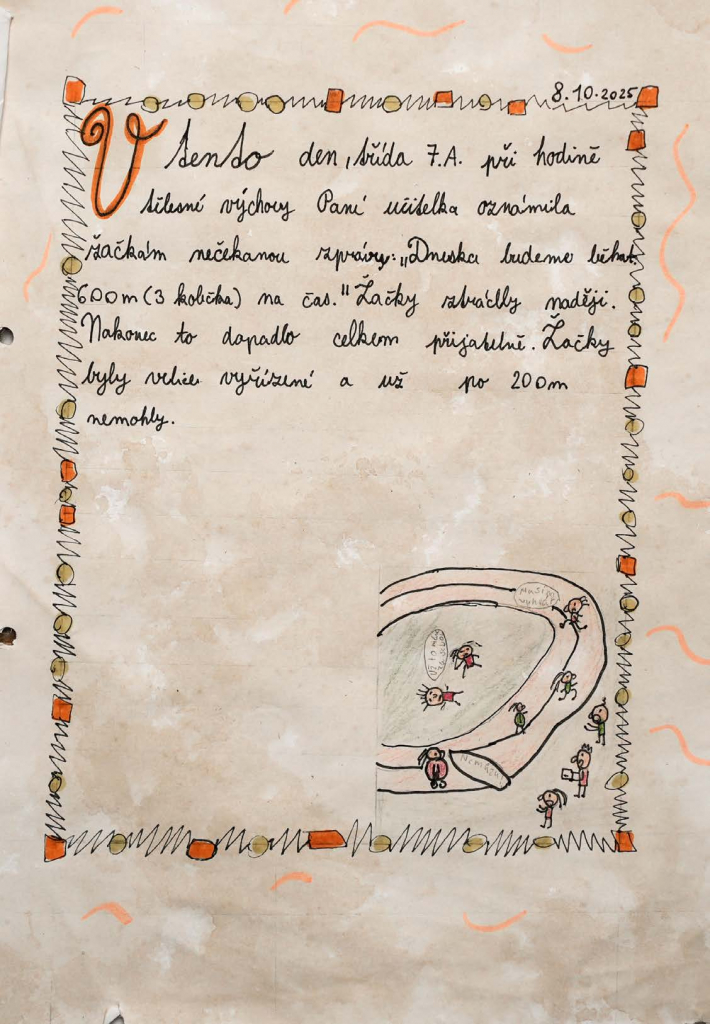 8.10.2025
V tento den, třída 7.A. při hodině
tělesné výchovy Paní učitelka oznámila
žačkám nečekanou zprávy: „Dneska budeme běhat
600m (3 količka) na čas." Žačky ztrátily naději.
Nakonec to dapadlo celkem přijatelně. Žačky
byly velice vyřízené a už po 200m
nemohly.
Musím
vyhrát
Už to
Nemůžu!